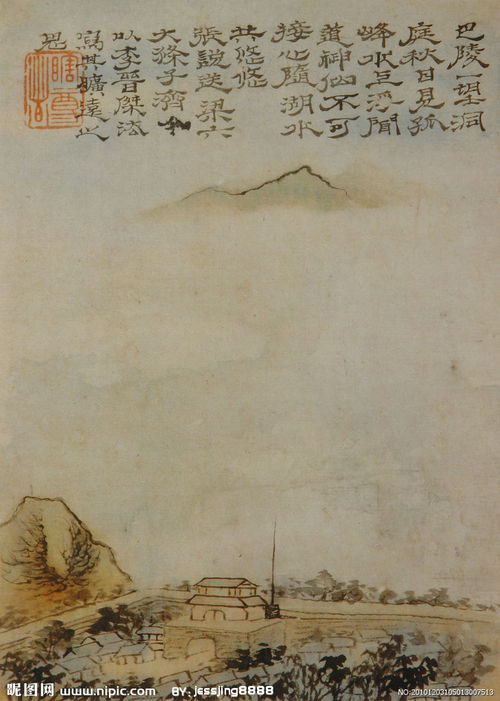 巴陵一望洞
庭秋日見孤
峰水上浮聞
道神仙不可
接心隨湖水
共悠悠
張說送梁六
大滌子濟
以李晉傑法
寫其曠遠之
思
昵图网 www.nipic.com BY: jessjing8888 NO:20101203105013007513